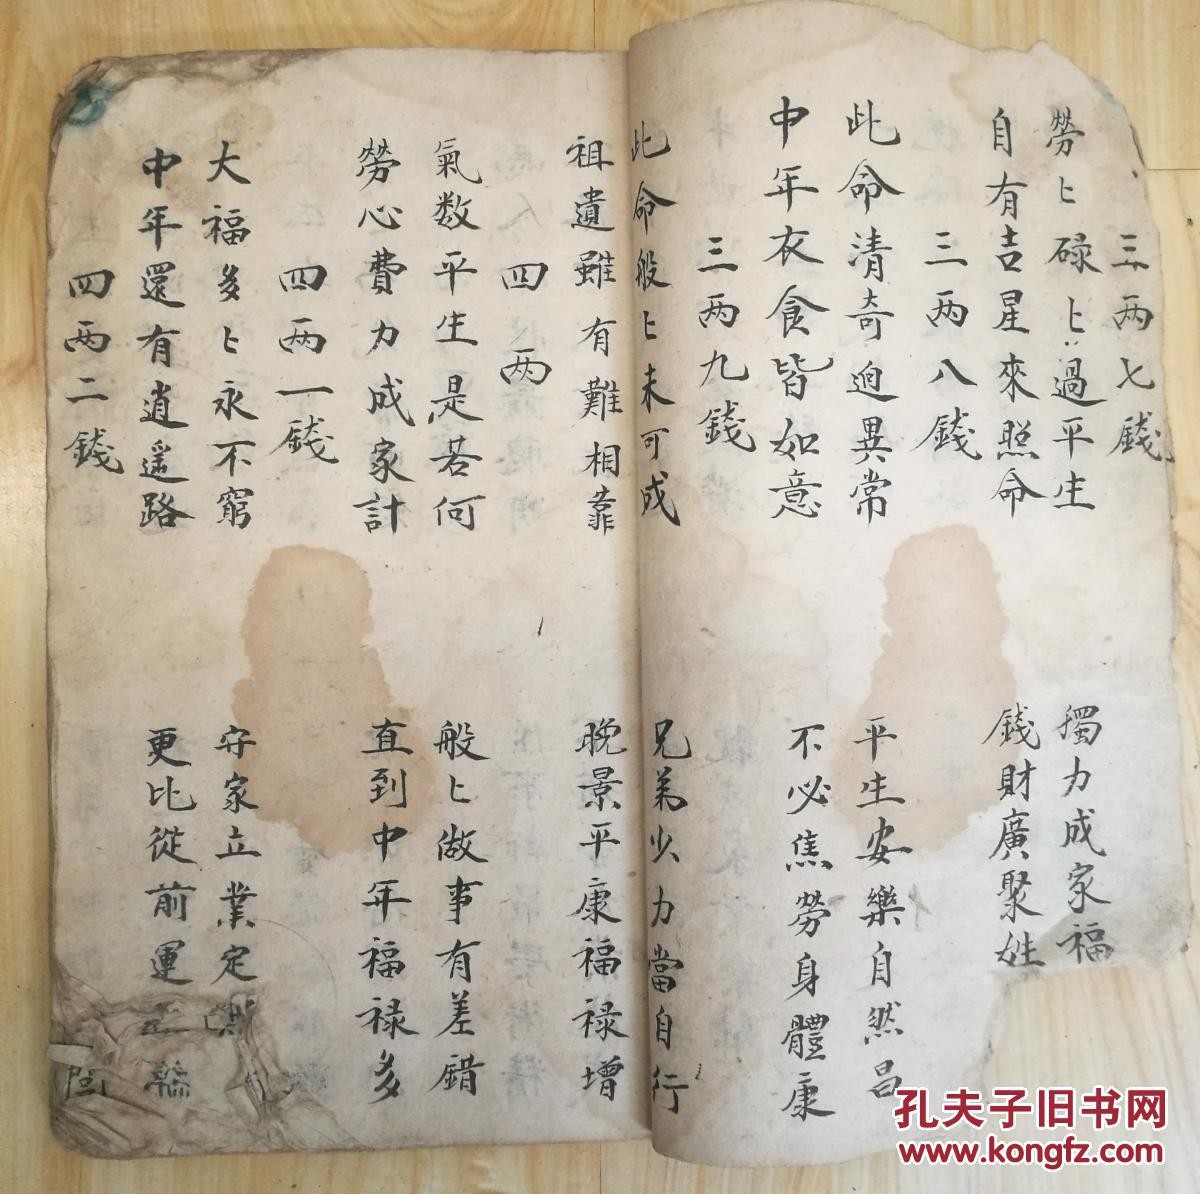 三两七錢
勞〻碌〻過平生 獨力成家福
自有吉星來照命 錢財廣聚姓
三两八錢
此命清奇迥異常 平生安樂自然昌
中年衣食皆如意 不必焦勞身體康
三两九錢
此命般〻未可成 兄弟少力當自行
祖遺雖有難相靠 晚景平康福禄增
四两
氣数平生是若何 般〻做事有差錯
勞心費力成家計 直到中年福禄多
四两一錢
大福多〻永不窮 守家立業定
中年還有逍遥路 更比從前運
四两二錢
孔夫子旧书网
www.kongfz.com